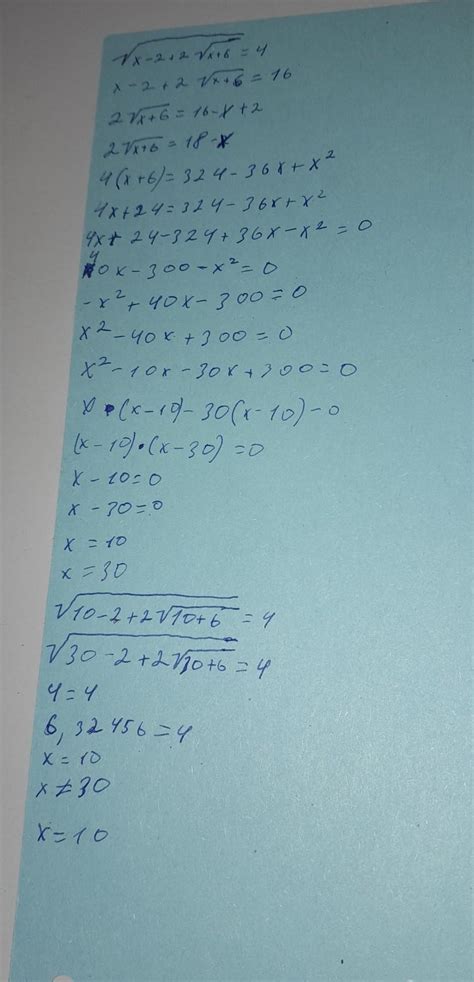 √(x-2+2√(x+6))=4
x-2+2√(x+6)=16
2√(x+6)=16-x+2
2√(x+6)=18-x
4(x+6)=324-36x+x²
4x+24=324-36x+x²
4x+24-324+36x-x²=0
40x-300-x²=0
-x²+40x-300=0
x²-40x+300=0
x²-10x-30x+300=0
x•(x-10)-30(x-10)-0
(x-10)•(x-30)=0
x-10=0
x-30=0
x=10
x=30
√(10-2+2√(10+6))=4
√(30-2+2√(30+6))=4
4=4
6,32456=4
x=10
x≠30
x=10